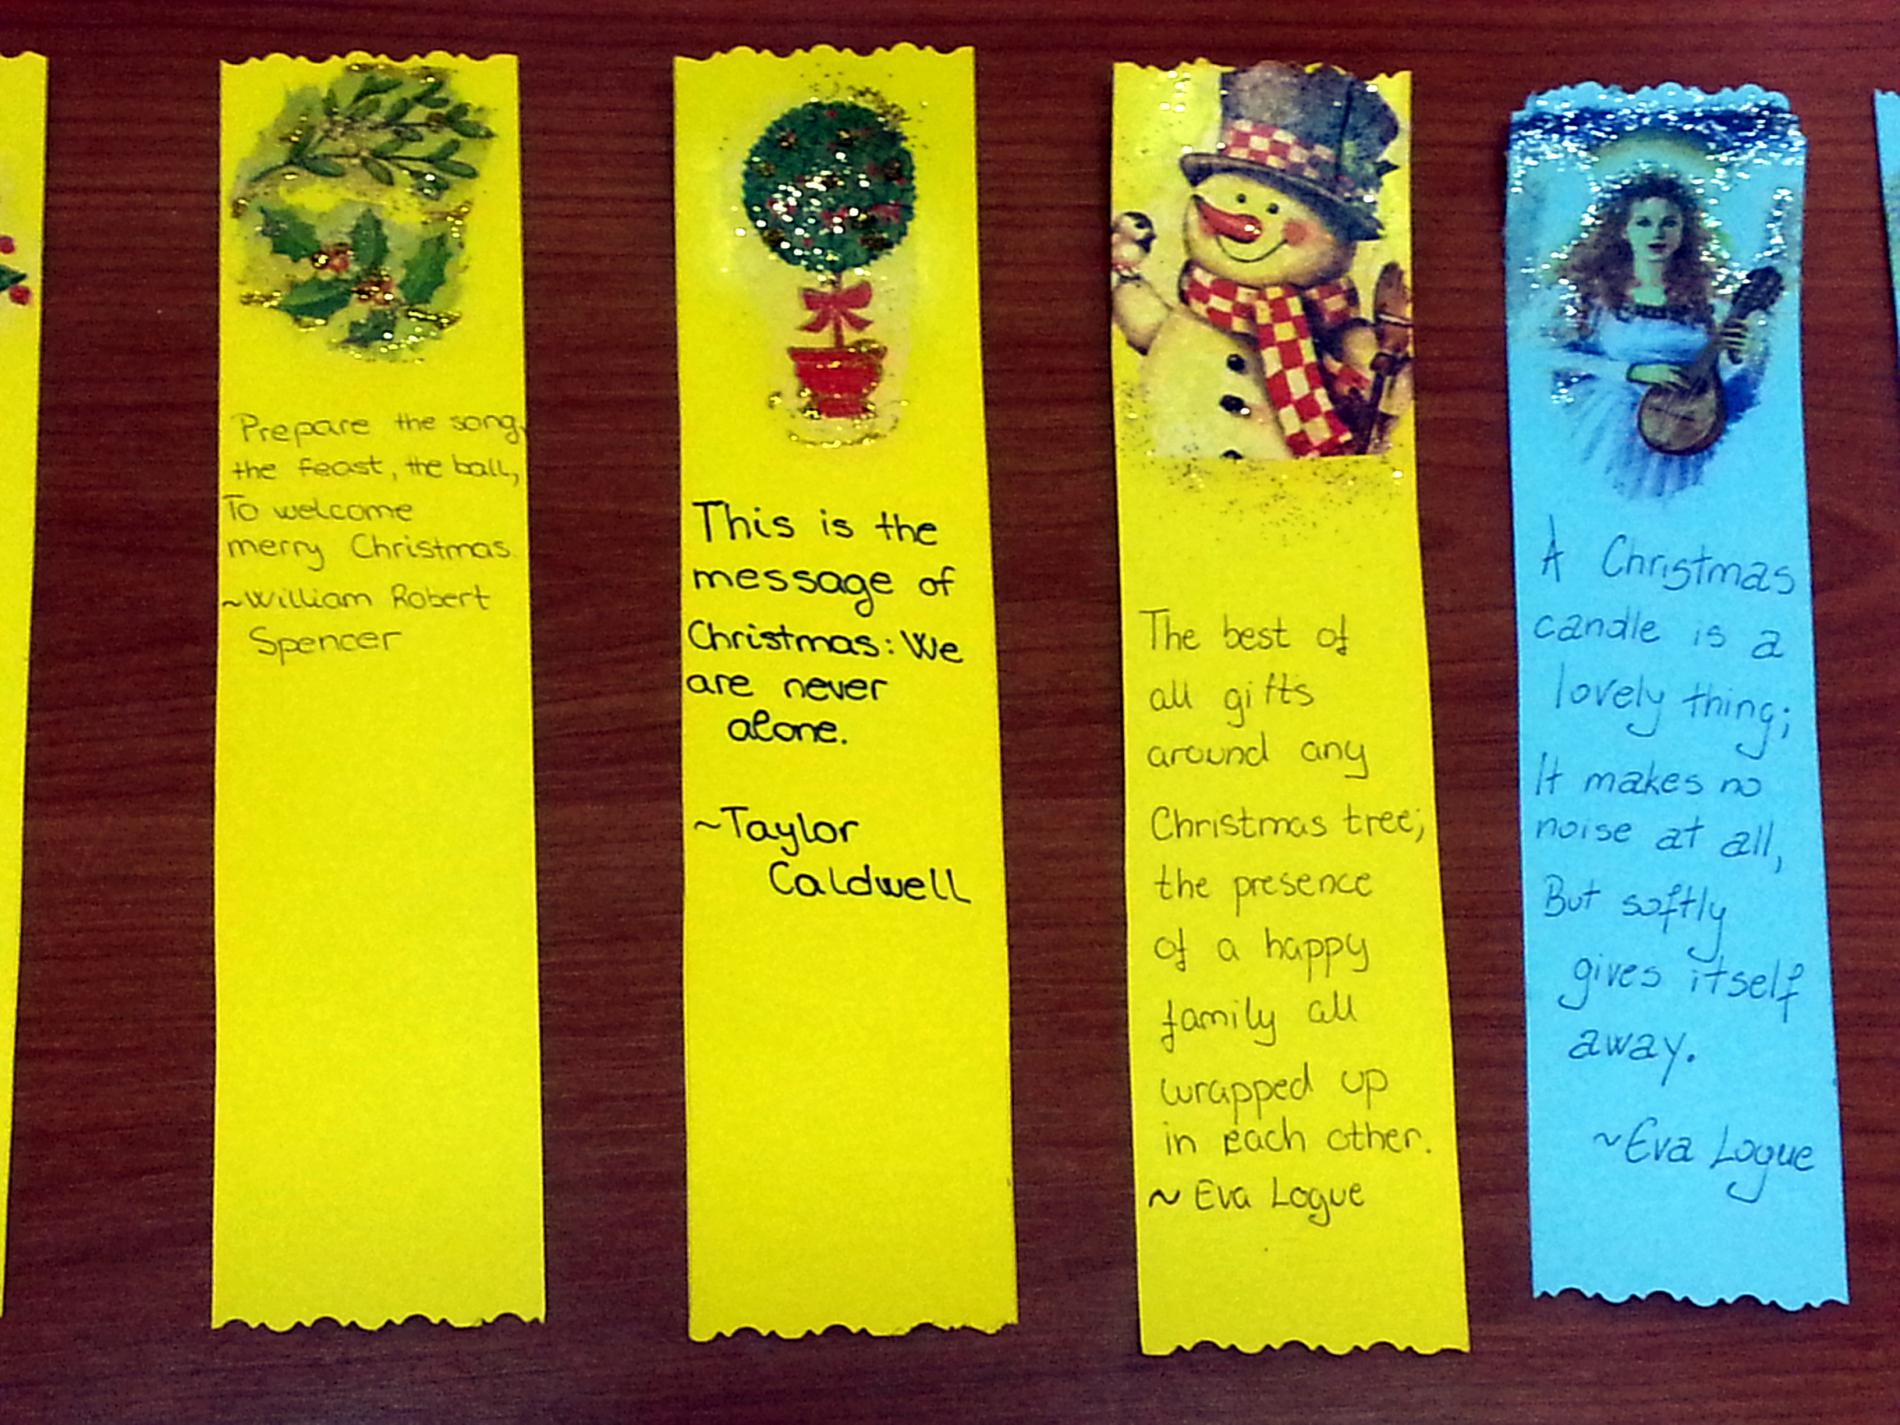 Prepare the song,
the feast, the ball,
To welcome
merry Christmas.
~William Robert
Spencer
This is the
message of
Christmas: We
are never
alone.
~Taylor
Caldwell
The best of
all gifts
around any
Christmas tree;
the presence
of a happy
family all
wrapped up
in each other.
~ Eva Logue
A Christmas
candle is a
lovely thing;
It makes no
noise at all,
But softly
gives itself
away.
~Eva Logue